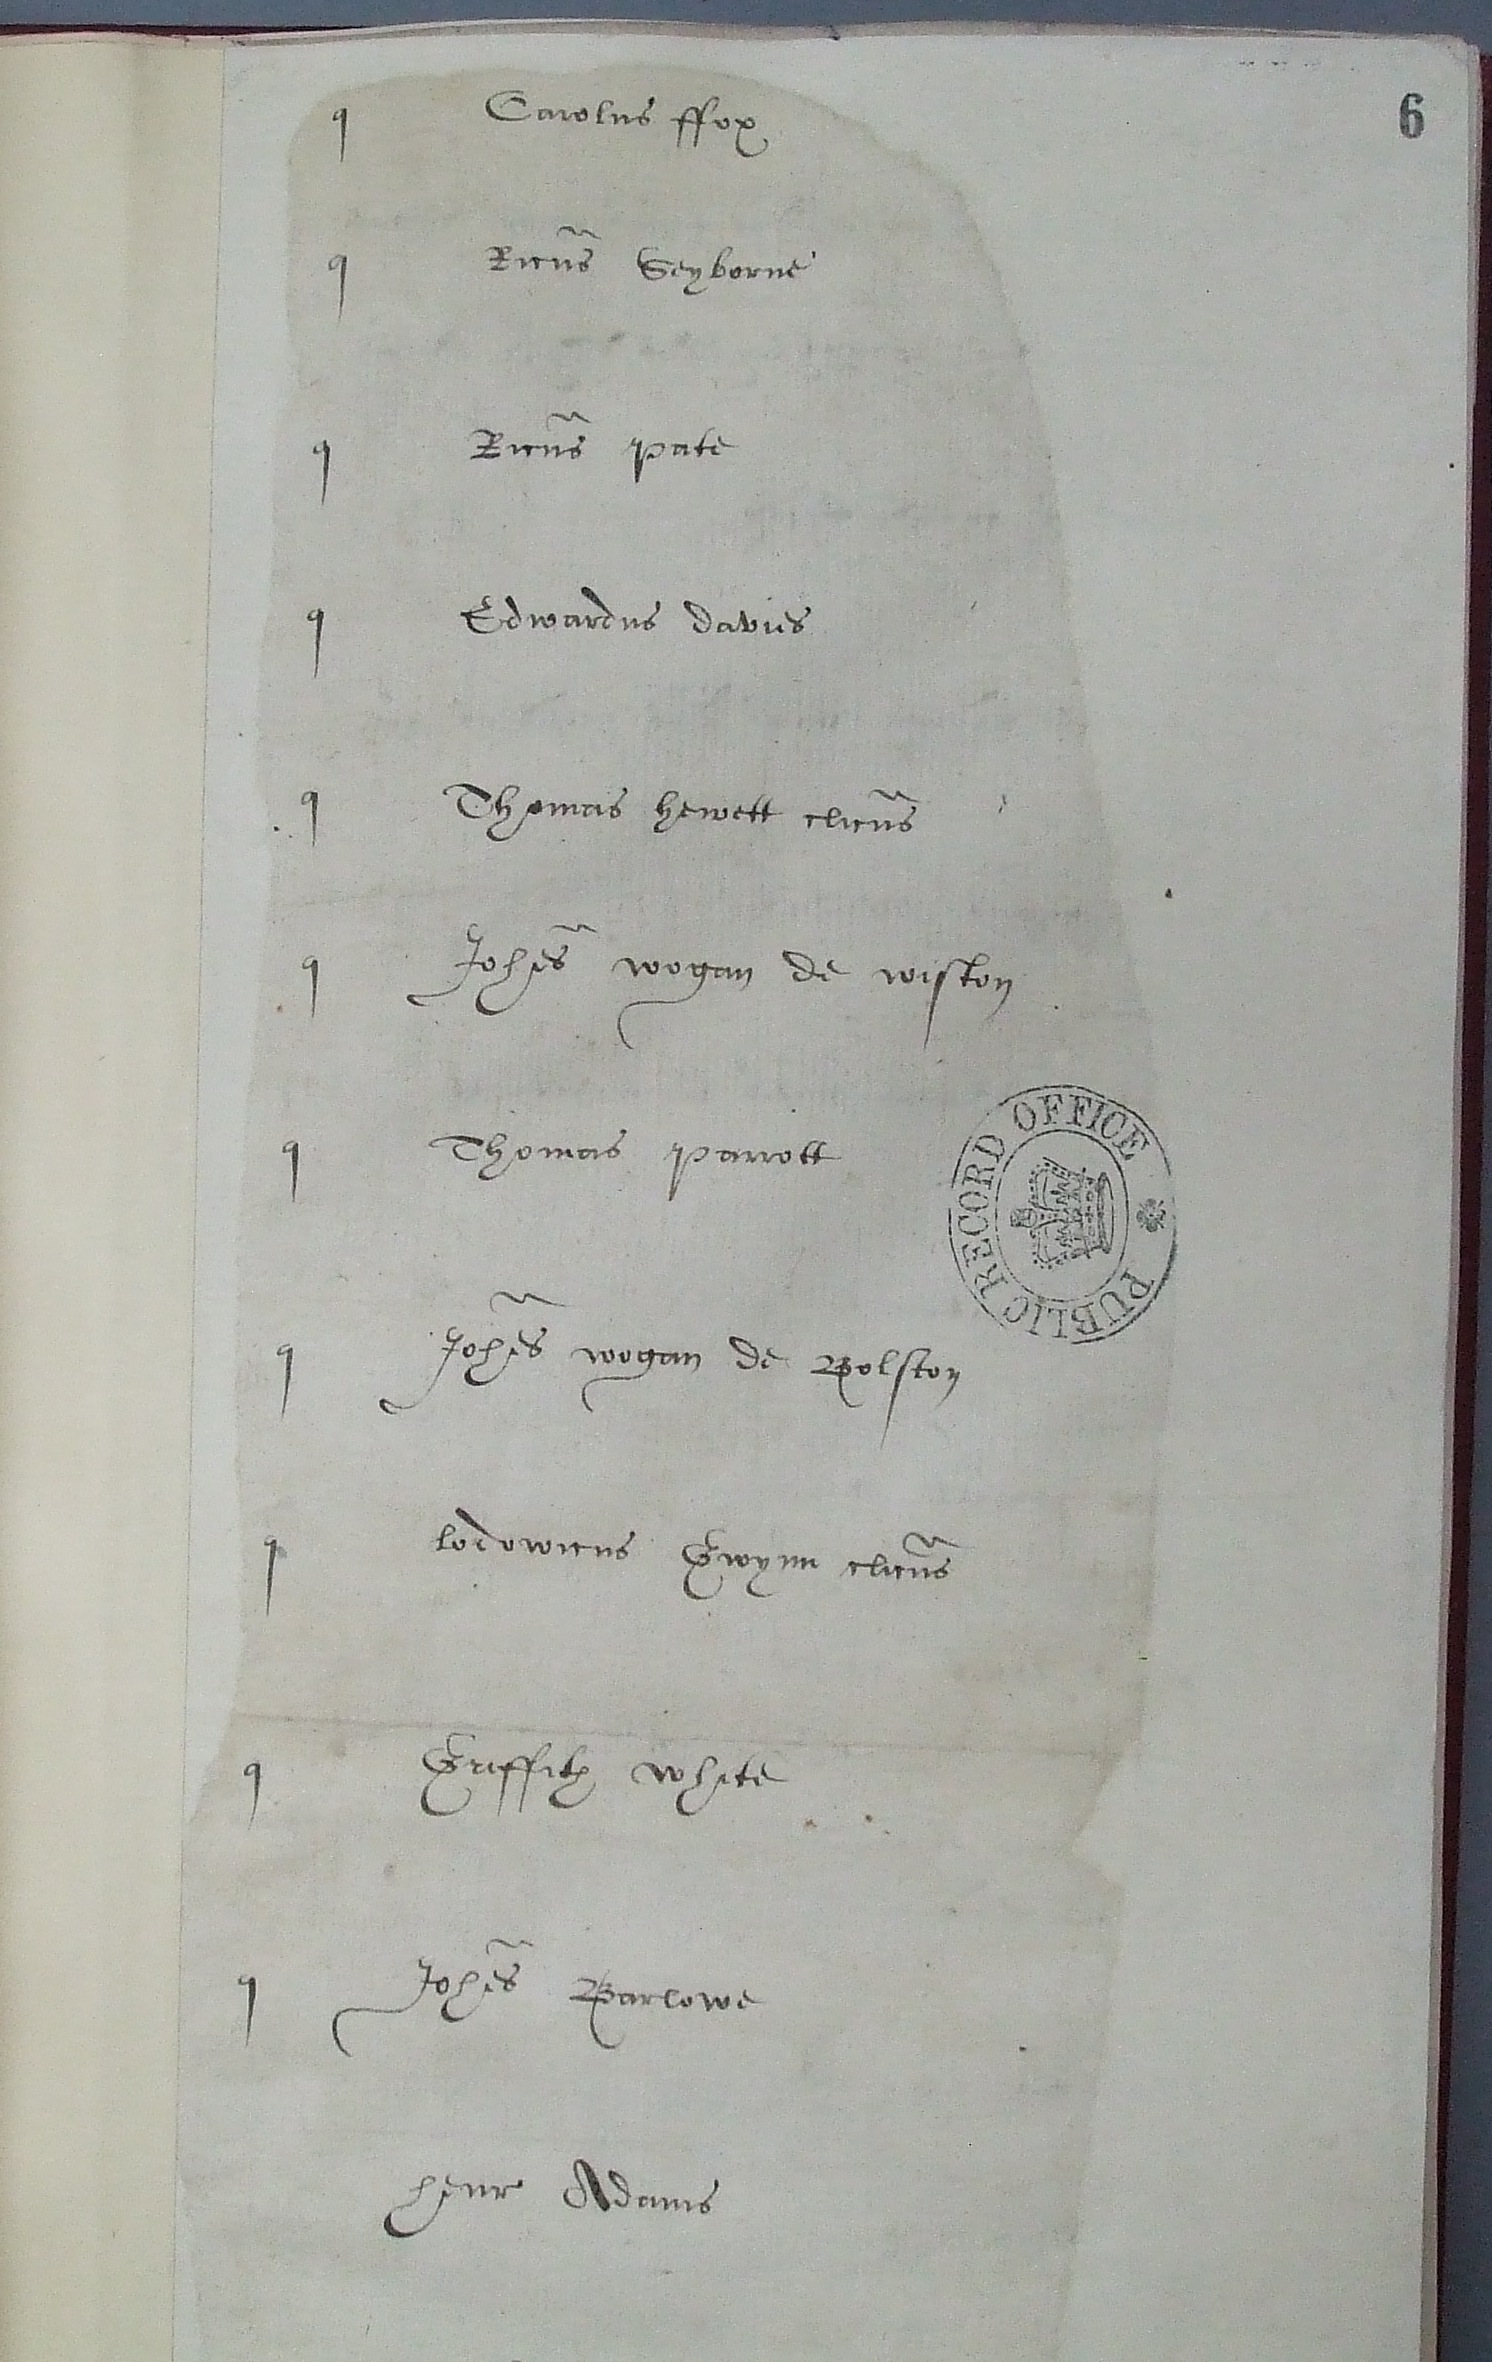 6
q Carolus ffox
q Ricus Seyborne
q Ricus pate
q Edwardus davies
q Thomas hewett clicus
q Johes wogan de wiston
q Thomas parrott
PUBLIC RECORD OFFICE
q Johes wogan de Bolston
q lodowicus Gwynn clicus
q Griffith white
q Johes Barlowe
henr Adams